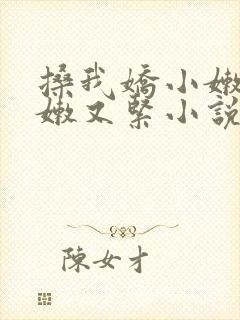 搡我嬌小嫩
嫩又緊小說
陳女才